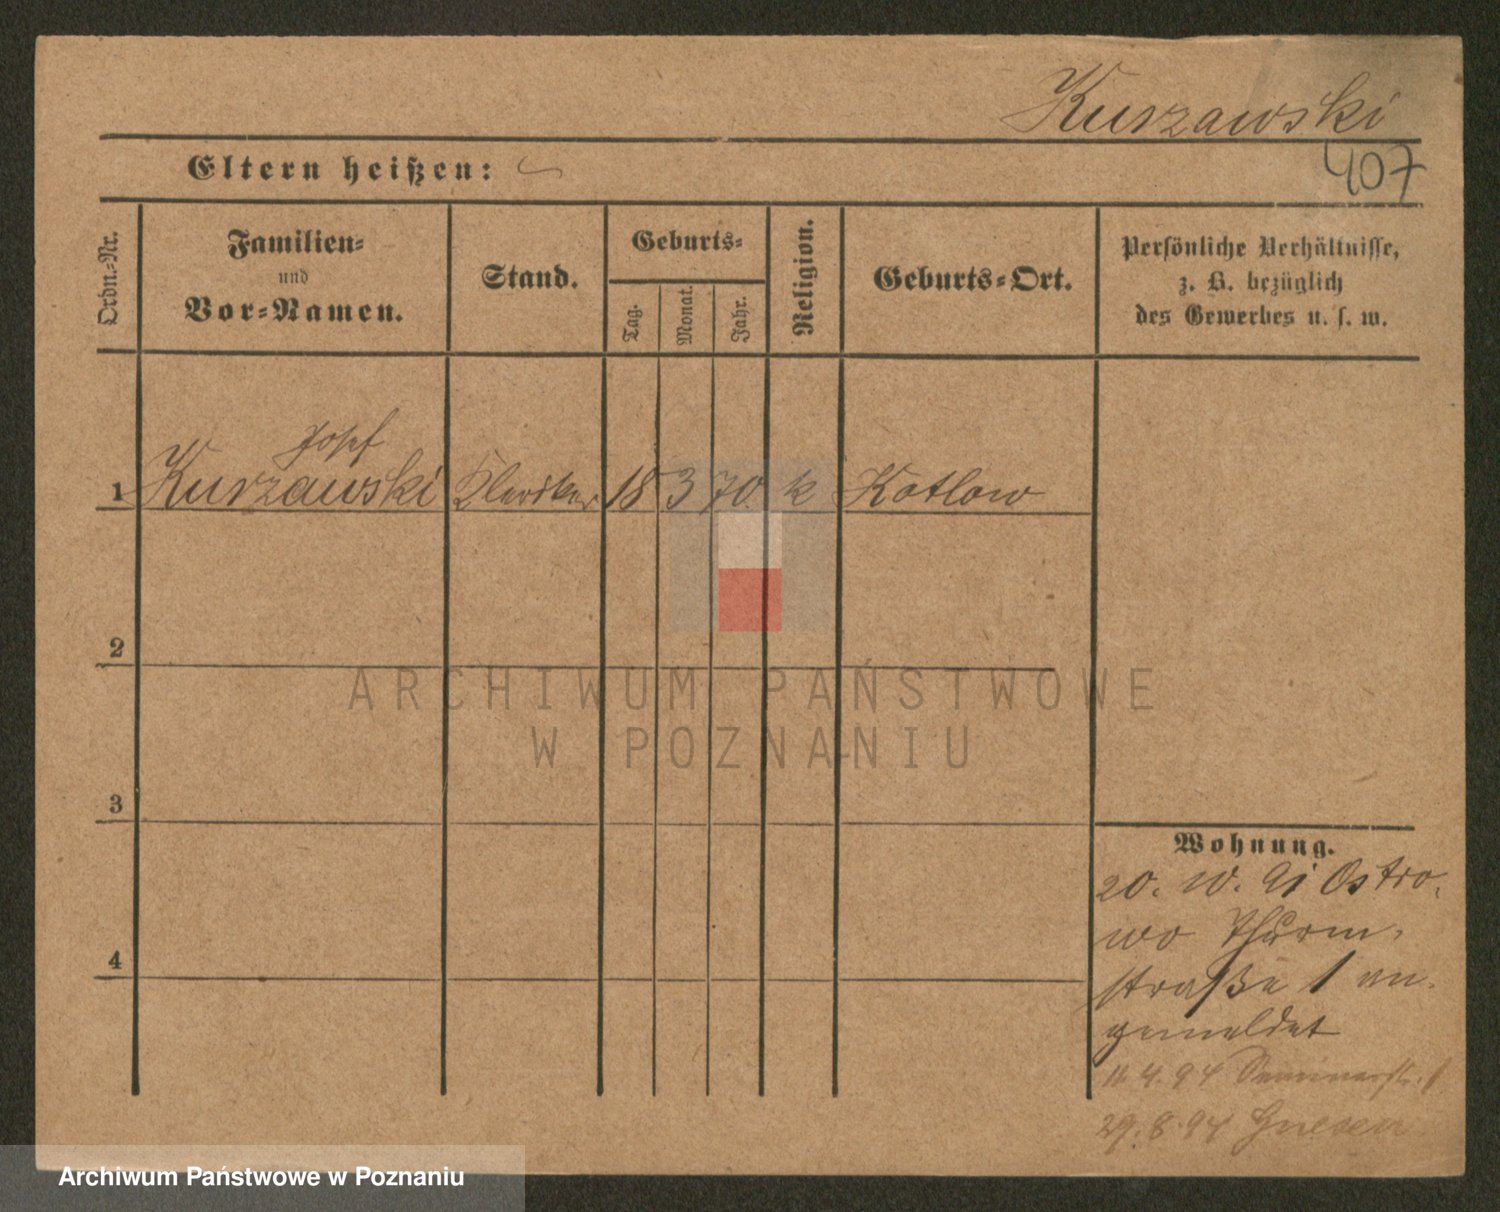 Kurzawski
407
Eltern heißen:
Ordn.-Nr.
Familien-
und
Vor-Namen.
Stand.
Geburts-
Tag.
Monat.
Jahr.
Religion.
Geburts-Ort.
Persönliche Verhältnisse,
z. B. bezüglich
des Gewerbes u. s. w.
Josef
1 Kurzawski Kleriker 18 3 70. k Kotlow
2
ARCHIWUM PAŃSTWOWE
W POZNANIU
3
4
Wohnung.
20. 10. 91 Ostro-
wo Thurm-
straße 1 an-
gemeldet
11.4.94 Seminarstr. 1
29.8.94 Gnesen
Archiwum Państwowe w Poznaniu